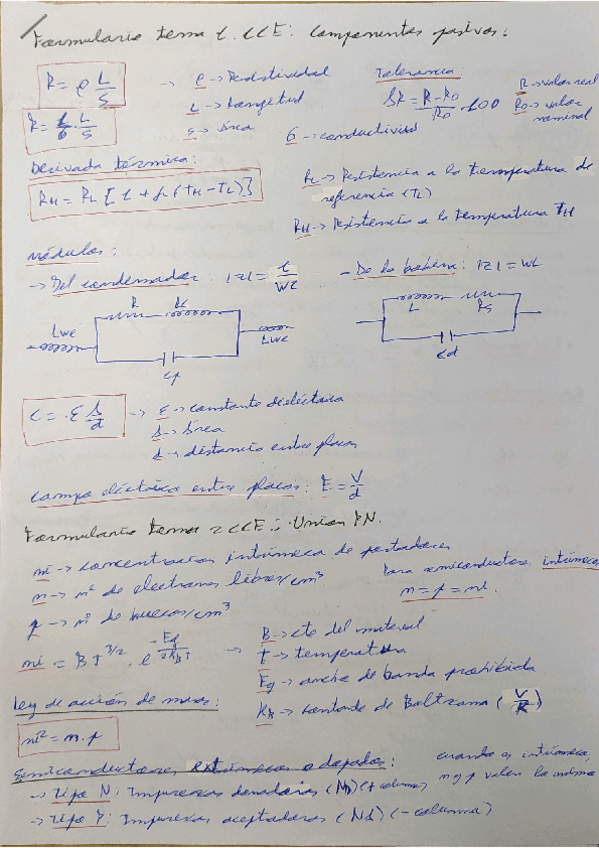 Formulario tema 1. CCE: Componentes pasivos:
R = ρ L/S → ρ → Resistividad
L → Longitud
S → Área
Tolerancia:
δR = R - R₀/R₀ · 100
R → valor real
R₀ → valor nominal
R = 1/σ · L/S
σ → conductividad
Derivada térmica:
R_H = R_L [1 + α (T_H - T_L)]
R_L → Resistencia a la temperatura de
referencia (T_L)
R_H → Resistencia a la temperatura T_H
Módulos:
→ Del condensador: |Z| = 1/WC
- De la bobina: |Z| = WL
R
Lwc
Lwc
Cp
L
Rs
Cd
C = ε S/d → ε → constante dieléctrica
S → Área
d → distancia entre placas
Campo eléctrico entre placas: E = V/d
Formulario tema 2 CCE: Union PN.
ni → concentracion intrínseca de portadores
n → nº de electrones libres/cm³
p → nº de huecos/cm³
Para semiconductores intrínsecos
n = p = ni.
ni = B T^3/2 · e^-Eg/2K_B T → B → cte del material
T → temperatura
Eg → ancho de banda prohibida
K_B → constante de Boltzmann (V/K)
Ley de acción de masas:
ni² = n · p
Semiconductores extrínsecos o dopados:
cuando es intrínseco,
n y p valen lo mismo
→ Tipo N: Impurezas donadoras (Nd) (+ columna)
→ Tipo P: Impurezas aceptadoras (Nd) (- columna)